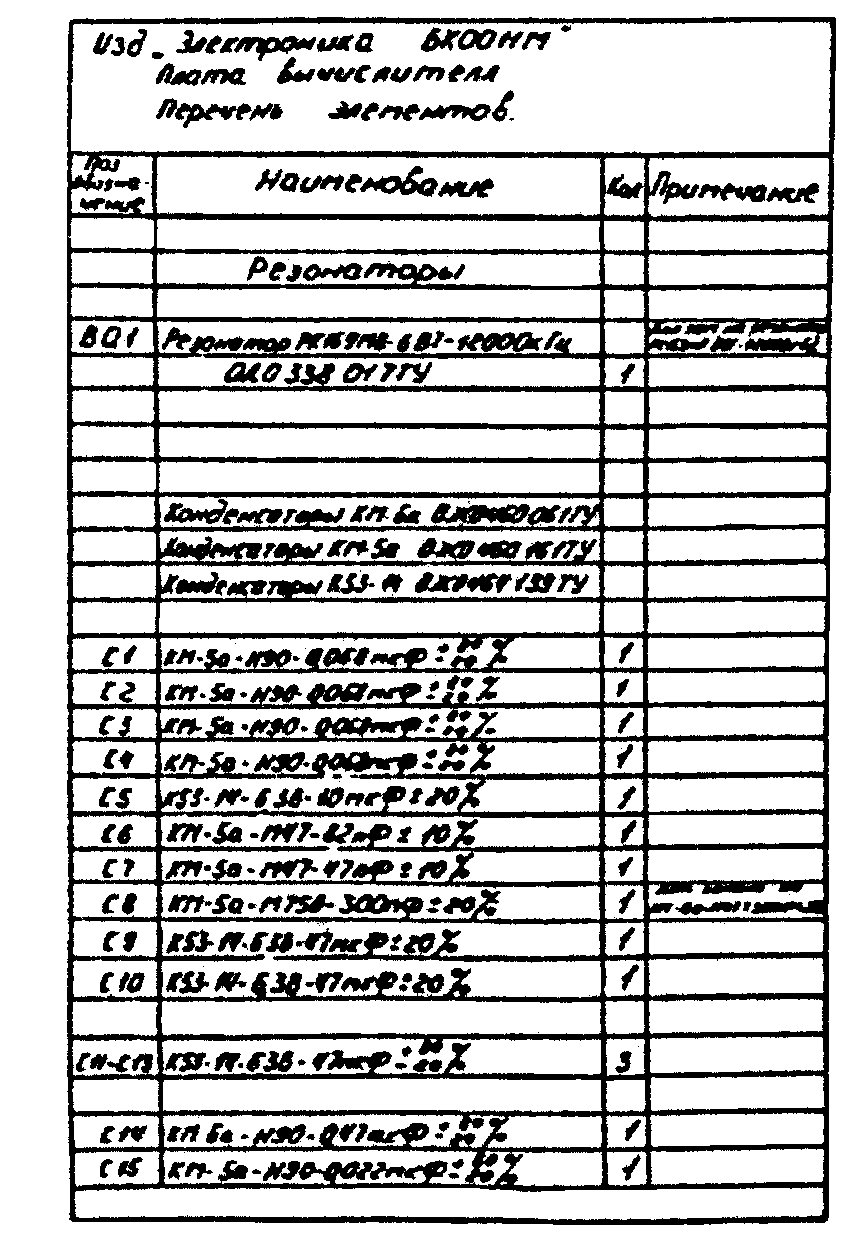 Изд. Электроника БК00НМ
Плата вычислителя
Перечень элементов.
Поз обозна- чение Наименование Кол Примечание
Резонаторы
BQ1 Резонатор РК169МВ-6ВГ-12000кГц
ОЖ0 338 017ТУ 1
Конденсаторы КМ-6а ОЖ0460061ТУ
Конденсаторы КМ-5а ОЖ0460161ТУ
Конденсаторы К53-14 ОЖ0464139ТУ
С1 КМ-5а-Н90-0,068мкФ ± 80 20 % 1
С2 КМ-5а-Н90-0,068мкФ ± 80 20 % 1
С3 КМ-5а-Н90-0,068мкФ ± 80 20 % 1
С4 КМ-5а-Н90-0,068мкФ ± 80 20 % 1
С5 К53-14-6,3В-10мкФ±20% 1
С6 КМ-5а-М47-82пФ±10% 1
С7 КМ-5а-М47-47пФ±10% 1
С8 КМ-5а-М750-300пФ±20% 1
С9 К53-14-6,3В-47мкФ±20% 1
С10 К53-14-6,3В-47мкФ±20% 1
С11-С13 К53-14-6,3В-47мкФ + 80 - 20 % 3
С14 КМ 6а-Н90-0,47мкФ ± 80 20 % 1
С15 КМ-5а-Н90-0,022мкФ ± 80 20 % 1